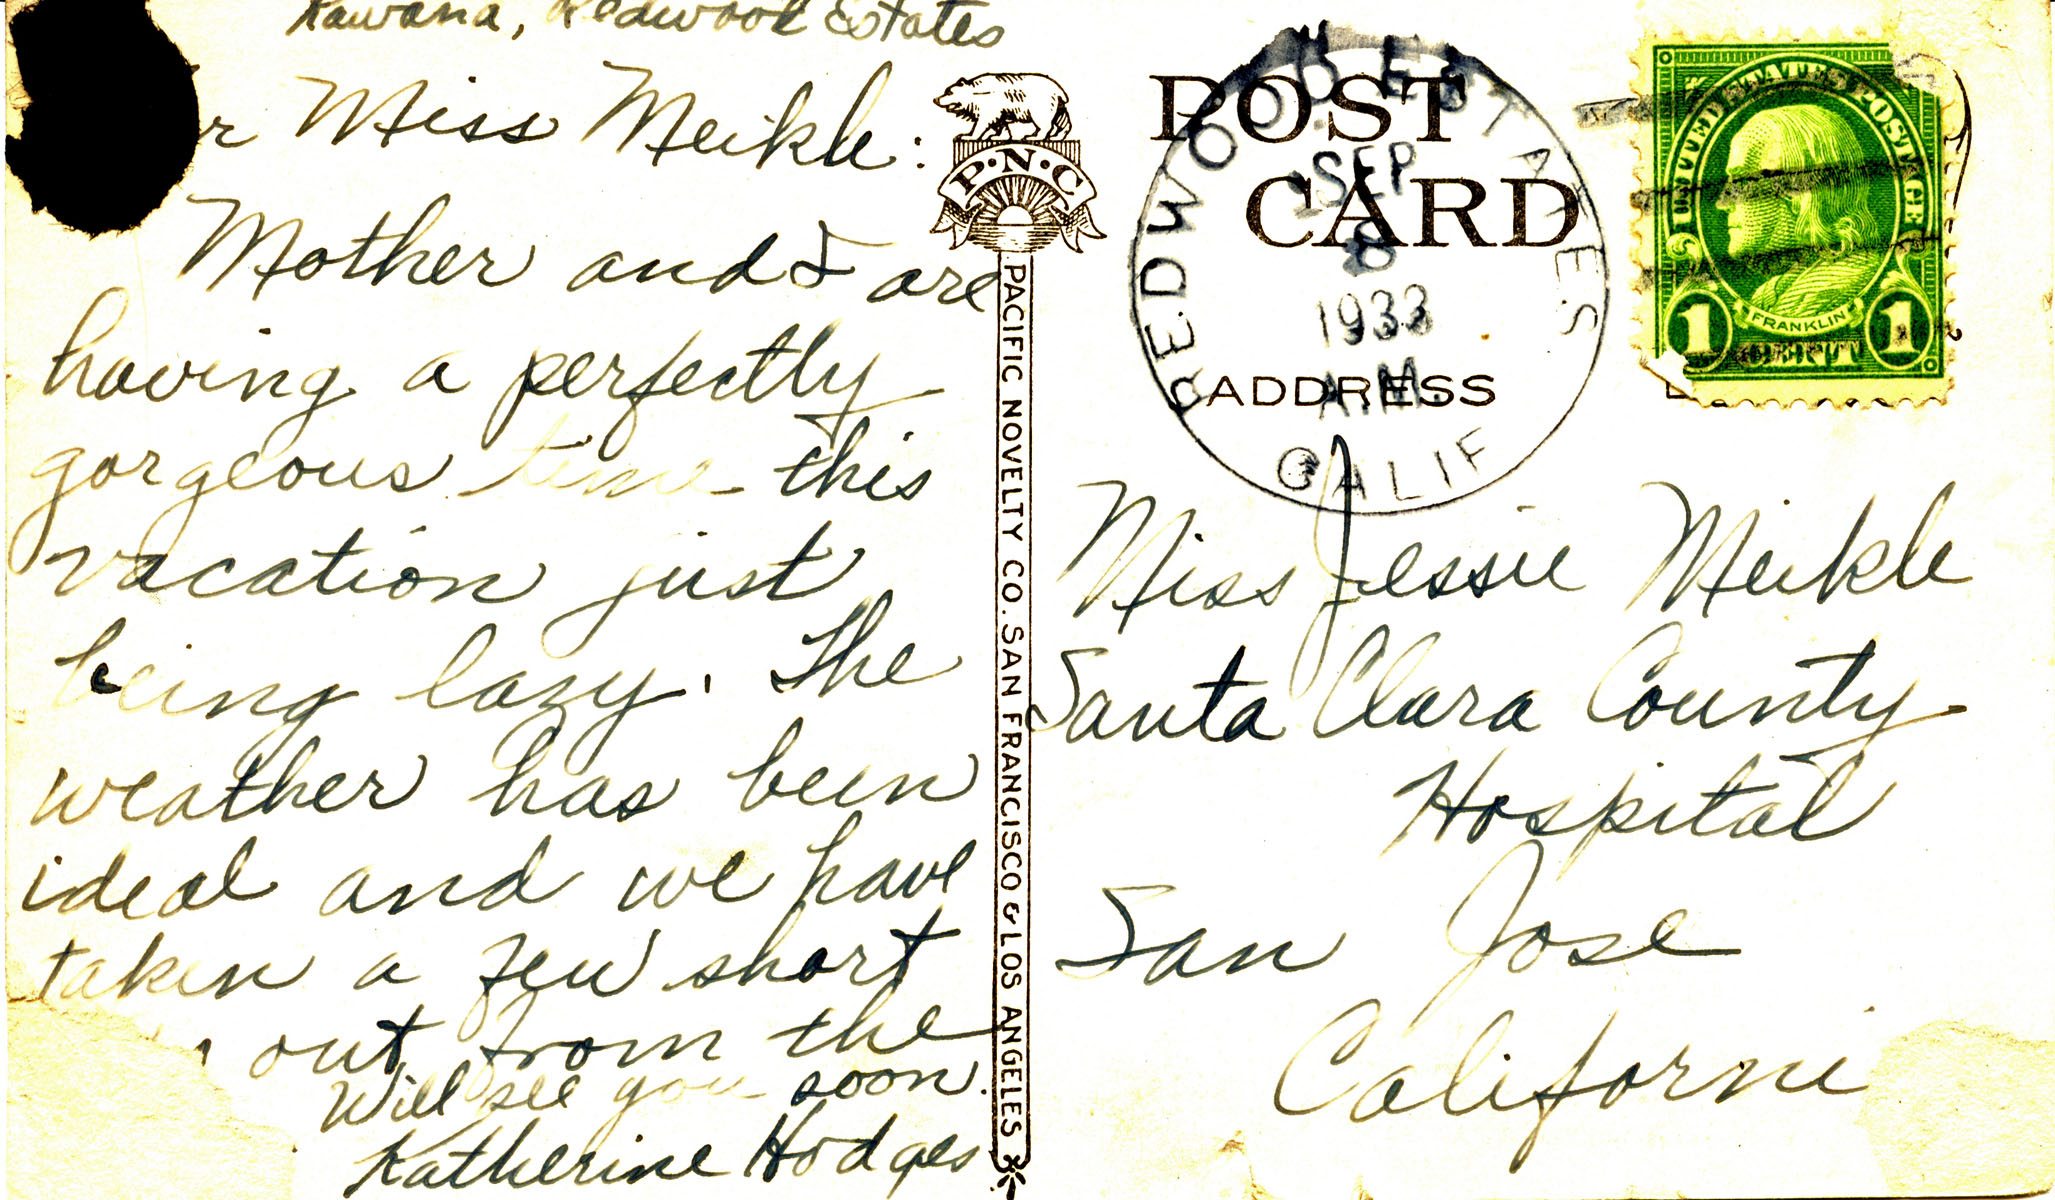 Kawana, Redwood Estates
r Miss Meikle:
Mother and I are
having a perfectly
gorgeous time this
vacation just
being lazy. The
weather has been
ideal and we have
taken a few short
out from the
Will see you soon.
Katherine Hodges
P·N·C
PACIFIC NOVELTY CO. SAN FRANCISCO & LOS ANGELES
POST
CARD
ADDRESS
REDWOOD ESTATES
SEP
8
1933
A.M.
CALIF
UNITED STATES POSTAGE
FRANKLIN
1 CENT 1
Miss Jessie Meikle
Santa Clara County
Hospital
San Jose
Californi